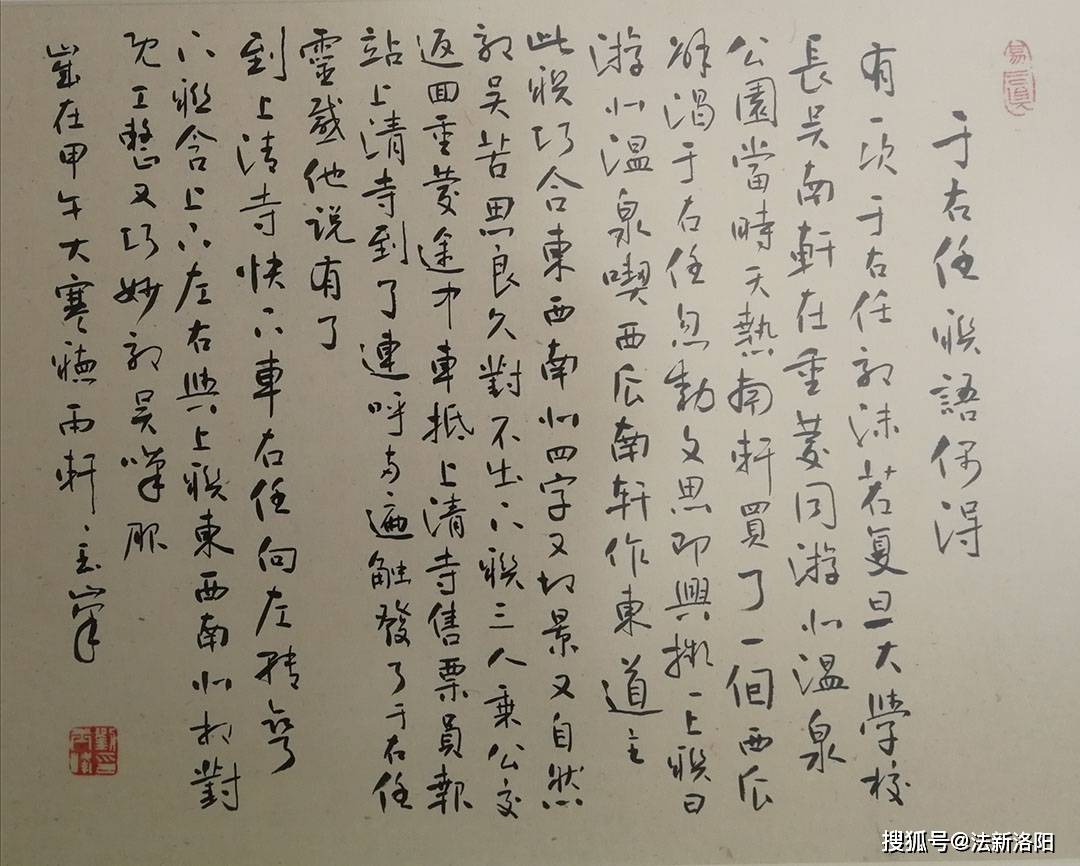 于右任聯語偶得
有一次于右任郭沫若复旦大學校
長吴南軒在重慶同游北温泉
公園當時天熱南軒買了一個西瓜
解渴于右任忽動文思即興擬一上聯曰
游北温泉喫西瓜南轩作東道主
此聯巧含東西南北四字又切景又自然
郭吴苦思良久對不出下聯三人乘公交
返回重慶途中車抵上清寺售票員報
站上清寺到了連呼两遍触發了于右任
靈感他説有了
到上清寺快下車右任向左轉彎
下聯含上下左右與上聯東西南北相對
既工整又巧妙郭吴嘆服
歲在甲午大寒聽雨軒主峯
搜狐号@法新洛阳